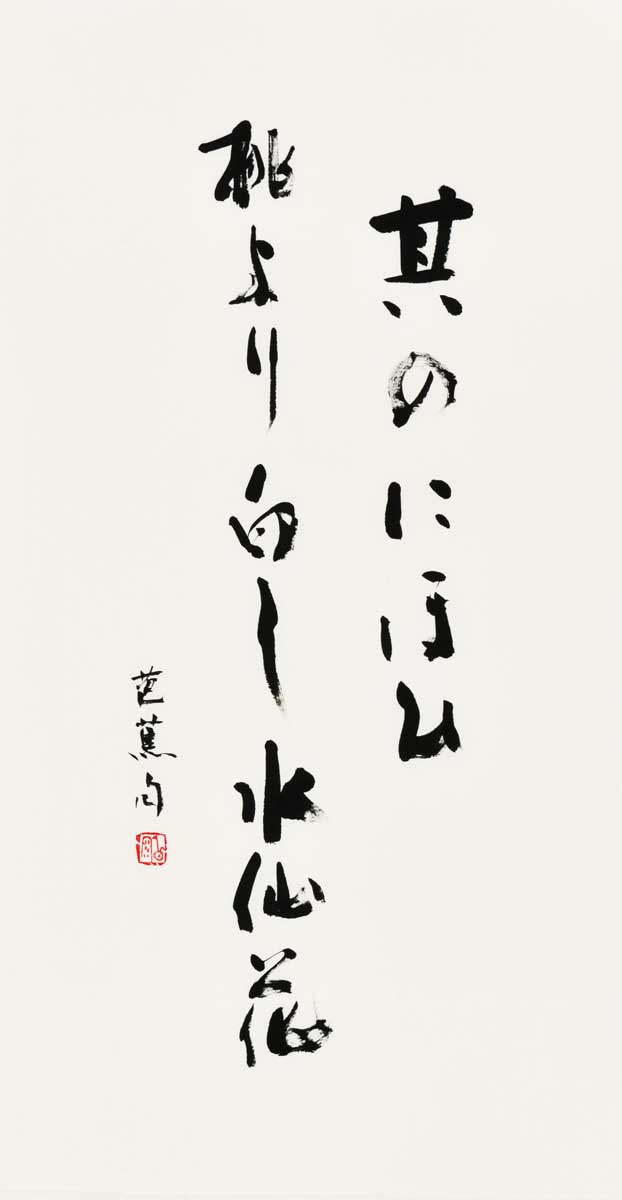 其のにほひ
桃より白し水仙花
芭蕉句